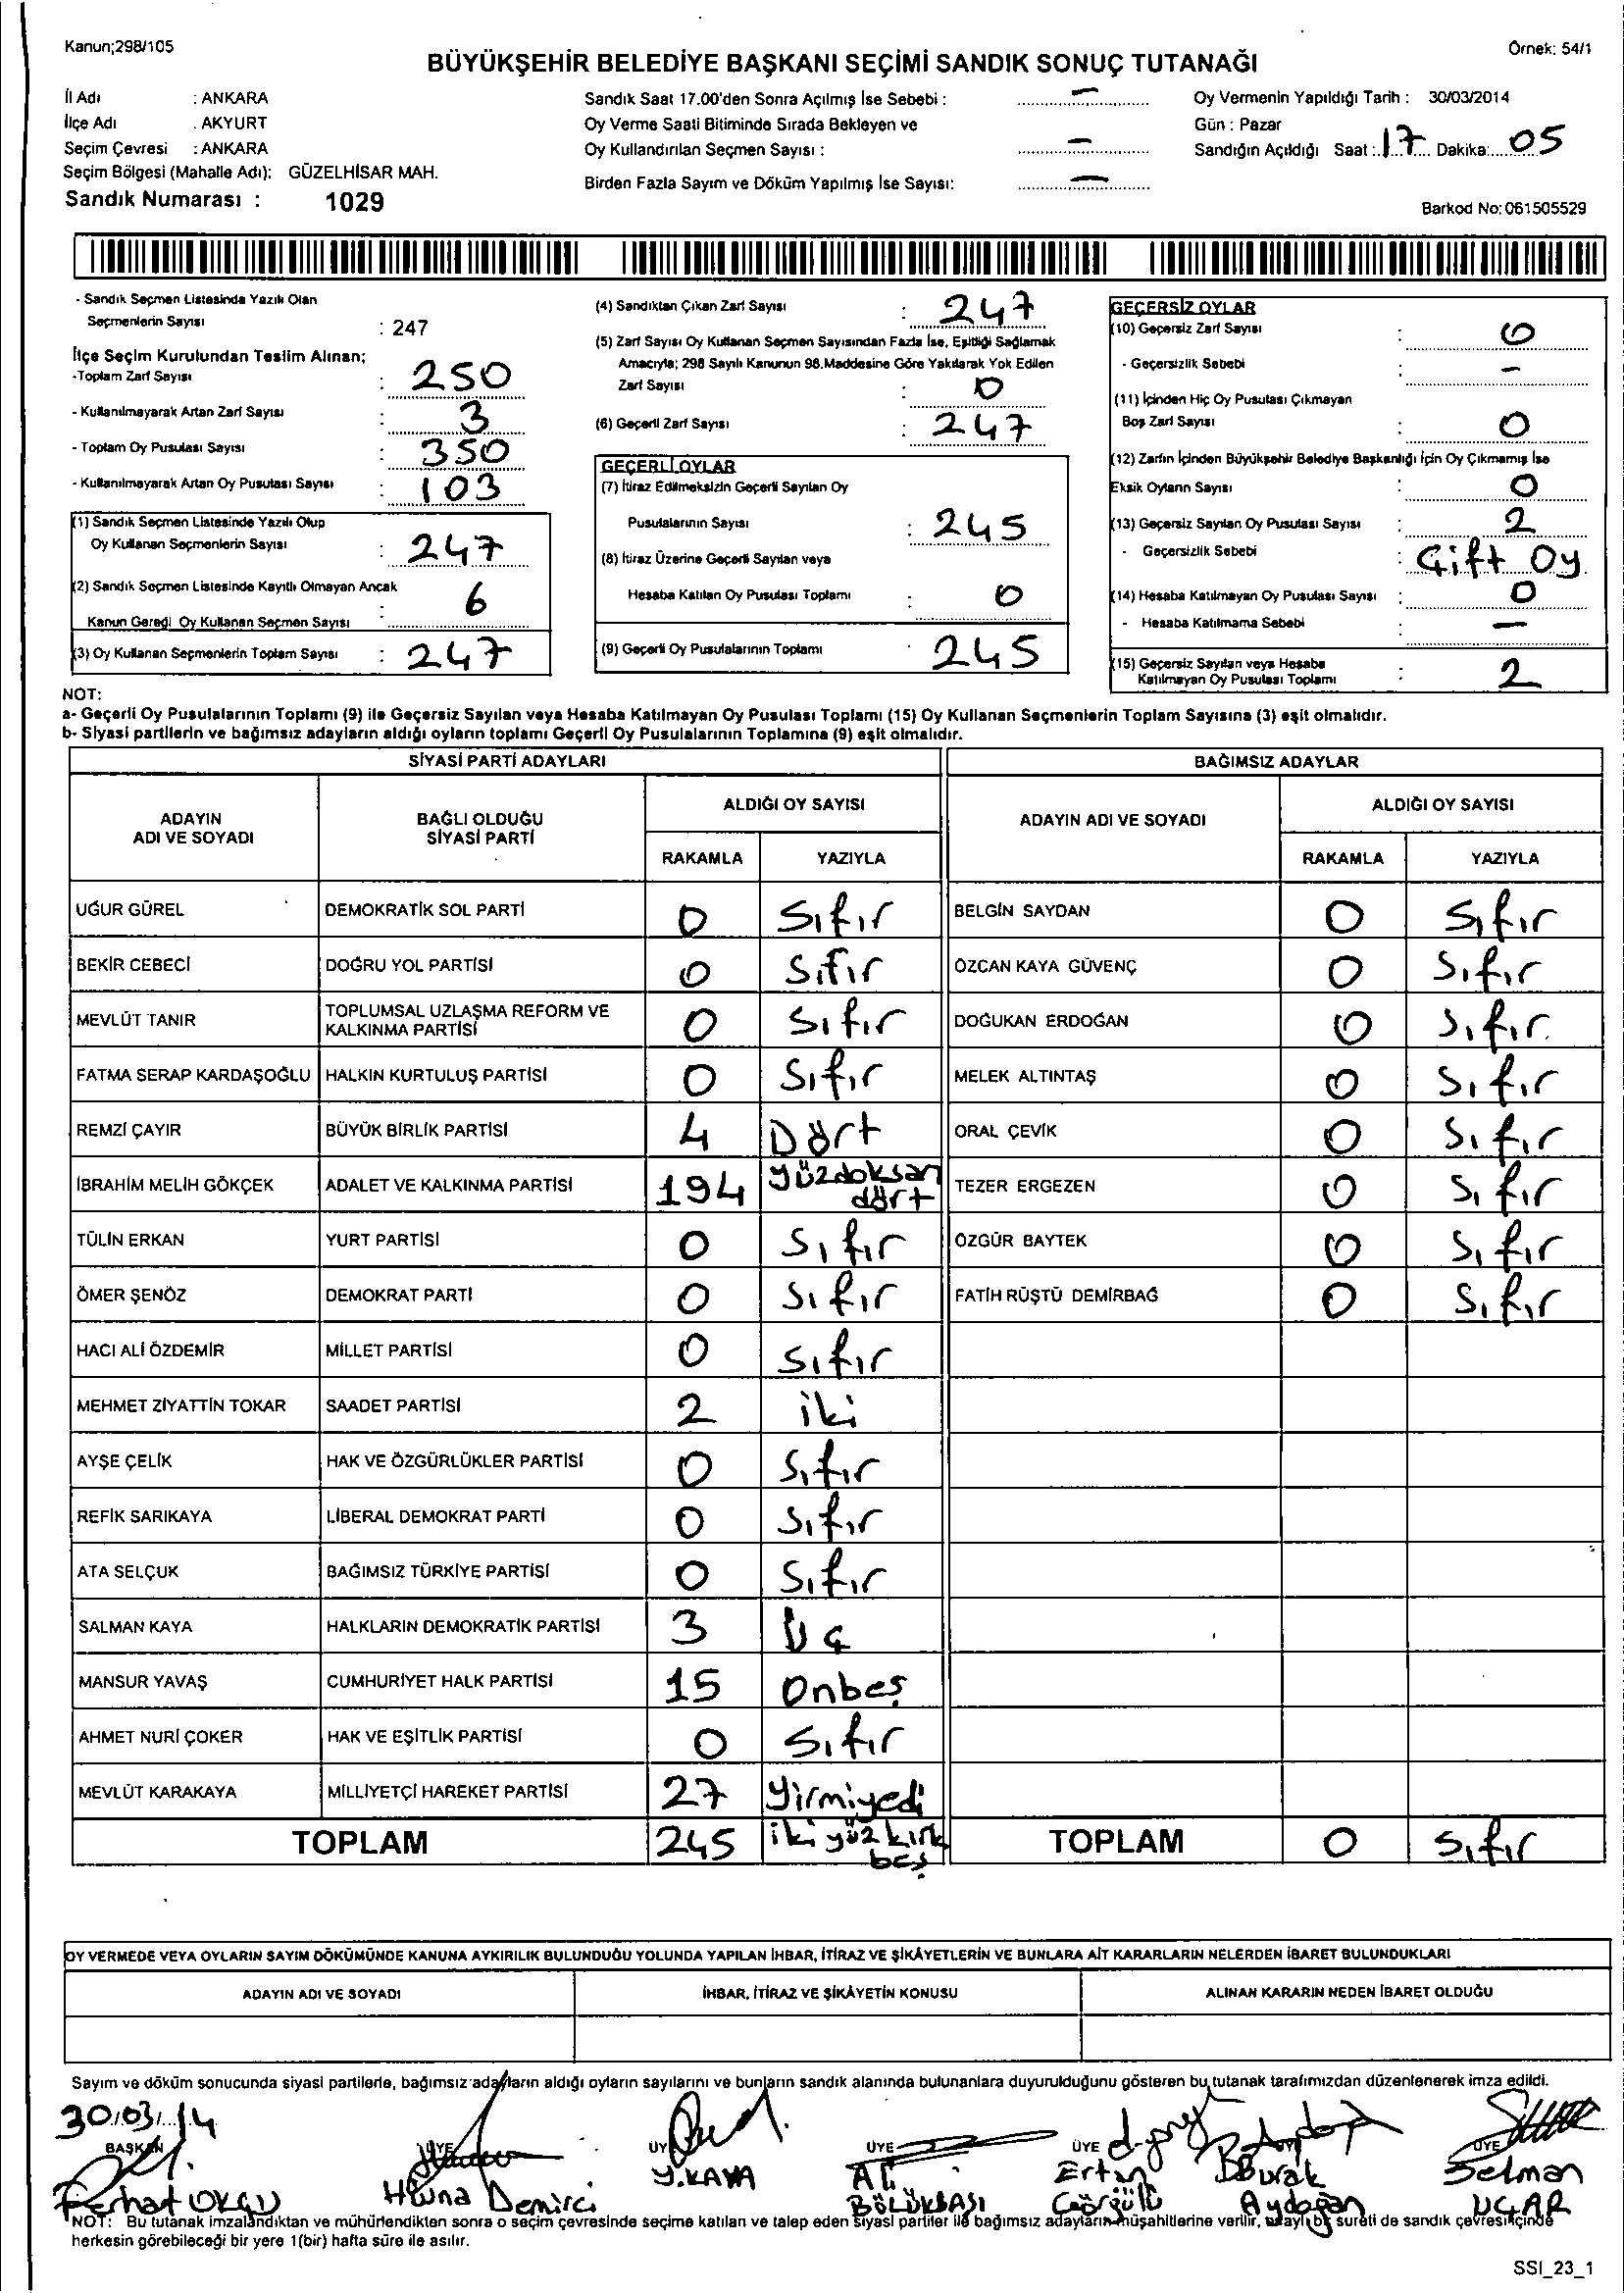 Kanun;298/105
Örnek: 54/1
BÜYÜKŞEHİR BELEDİYE BAŞKANI SEÇİMİ SANDIK SONUÇ TUTANAĞI
İl Adı : ANKARA
İlçe Adı . AKYURT
Seçim Çevresi : ANKARA
Seçim Bölgesi (Mahalle Adı): GÜZELHİSAR MAH.
Sandık Numarası : 1029
Sandık Saat 17.00'den Sonra Açılmış İse Sebebi : –
Oy Verme Saati Bitiminde Sırada Bekleyen ve
Oy Kullandırılan Seçmen Sayısı : –
Birden Fazla Sayım ve Döküm Yapılmış İse Sayısı: –
Oy Vermenin Yapıldığı Tarih : 30/03/2014
Gün : Pazar
Sandığın Açıldığı Saat : 17 Dakika: 05
Barkod No: 061505529
- Sandık Seçmen Listesinde Yazılı Olan
Seçmenlerin Sayısı : 247
İlçe Seçim Kurulundan Teslim Alınan;
-Toplam Zarf Sayısı : 250
- Kullanılmayarak Artan Zarf Sayısı : 3
- Toplam Oy Pusulası Sayısı : 350
- Kullanılmayarak Artan Oy Pusulası Sayısı : 103
(1) Sandık Seçmen Listesinde Yazılı Olup
Oy Kullanan Seçmenlerin Sayısı : 247
(2) Sandık Seçmen Listesinde Kayıtlı Olmayan Ancak
Kanun Gereği Oy Kullanan Seçmen Sayısı : 6
(3) Oy Kullanan Seçmenlerin Toplam Sayısı : 247
(4) Sandıktan Çıkan Zarf Sayısı : 247
(5) Zarf Sayısı Oy Kullanan Seçmen Sayısından Fazla İse, Eşitliği Sağlamak
Amacıyla; 298 Sayılı Kanunun 98.Maddesine Göre Yakılarak Yok Edilen
Zarf Sayısı : 0
(6) Geçerli Zarf Sayısı : 247
GEÇERLİ OYLAR
(7) İtiraz Edilmeksizin Geçerli Sayılan Oy
Pusulalarının Sayısı : 245
(8) İtiraz Üzerine Geçerli Sayılan veya
Hesaba Katılan Oy Pusulası Toplamı : 0
(9) Geçerli Oy Pusulalarının Toplamı : 245
GEÇERSİZ OYLAR
(10) Geçersiz Zarf Sayısı : 0
- Geçersizlik Sebebi : –
(11) İçinden Hiç Oy Pusulası Çıkmayan
Boş Zarf Sayısı : 0
(12) Zarfın İçinden Büyükşehir Belediye Başkanlığı İçin Oy Çıkmamış İse
Eksik Oyların Sayısı : 0
(13) Geçersiz Sayılan Oy Pusulası Sayısı : 2
- Geçersizlik Sebebi : Çift Oy
(14) Hesaba Katılmayan Oy Pusulası Sayısı : 0
- Hesaba Katılmama Sebebi : –
(15) Geçersiz Sayılan veya Hesaba
Katılmayan Oy Pusulası Toplamı : 2
NOT:
a- Geçerli Oy Pusulalarının Toplamı (9) ile Geçersiz Sayılan veya Hesaba Katılmayan Oy Pusulası Toplamı (15) Oy Kullanan Seçmenlerin Toplam Sayısına (3) eşit olmalıdır.
b- Siyasi partilerin ve bağımsız adayların aldığı oyların toplamı Geçerli Oy Pusulalarının Toplamına (9) eşit olmalıdır.
SİYASİ PARTİ ADAYLARI
ADAYIN ADI VE SOYADI BAĞLI OLDUĞU SİYASİ PARTİ ALDIĞI OY SAYISI
RAKAMLA YAZIYLA
UĞUR GÜREL DEMOKRATİK SOL PARTİ 0 Sıfır
BEKİR CEBECİ DOĞRU YOL PARTİSİ 0 Sıfır
MEVLÜT TANIR TOPLUMSAL UZLAŞMA REFORM VE KALKINMA PARTİSİ 0 Sıfır
FATMA SERAP KARDAŞOĞLU HALKIN KURTULUŞ PARTİSİ 0 Sıfır
REMZİ ÇAYIR BÜYÜK BİRLİK PARTİSİ 4 Dört
İBRAHİM MELİH GÖKÇEK ADALET VE KALKINMA PARTİSİ 194 yüzdoksan dört
TÜLİN ERKAN YURT PARTİSİ 0 Sıfır
ÖMER ŞENÖZ DEMOKRAT PARTİ 0 Sıfır
HACI ALİ ÖZDEMİR MİLLET PARTİSİ 0 Sıfır
MEHMET ZİYATTİN TOKAR SAADET PARTİSİ 2 iki
AYŞE ÇELİK HAK VE ÖZGÜRLÜKLER PARTİSİ 0 Sıfır
REFİK SARIKAYA LİBERAL DEMOKRAT PARTİ 0 Sıfır
ATA SELÇUK BAĞIMSIZ TÜRKİYE PARTİSİ 0 Sıfır
SALMAN KAYA HALKLARIN DEMOKRATİK PARTİSİ 3 Üç
MANSUR YAVAŞ CUMHURİYET HALK PARTİSİ 15 Onbeş
AHMET NURİ ÇOKER HAK VE EŞİTLİK PARTİSİ 0 Sıfır
MEVLÜT KARAKAYA MİLLİYETÇİ HAREKET PARTİSİ 27 Yirmiyedi
TOPLAM 245 iki yüz kırk beş
BAĞIMSIZ ADAYLAR
ADAYIN ADI VE SOYADI ALDIĞI OY SAYISI
RAKAMLA YAZIYLA
BELGİN SAYDAN 0 Sıfır
ÖZCAN KAYA GÜVENÇ 0 Sıfır
DOĞUKAN ERDOĞAN 0 Sıfır
MELEK ALTINTAŞ 0 Sıfır
ORAL ÇEVİK 0 Sıfır
TEZER ERGEZEN 0 Sıfır
ÖZGÜR BAYTEK 0 Sıfır
FATİH RÜŞTÜ DEMİRBAĞ 0 Sıfır
TOPLAM 0 Sıfır
OY VERMEDE VEYA OYLARIN SAYIM DÖKÜMÜNDE KANUNA AYKIRILIK BULUNDUĞU YOLUNDA YAPILAN İHBAR, İTİRAZ VE ŞİKÂYETLERİN VE BUNLARA AİT KARARLARIN NELERDEN İBARET BULUNDUKLARI
ADAYIN ADI VE SOYADI İHBAR, İTİRAZ VE ŞİKÂYETİN KONUSU ALINAN KARARIN NEDEN İBARET OLDUĞU
Sayım ve döküm sonucunda siyasi partilerle, bağımsız adayların aldığı oyların sayılarını ve bunların sandık alanında bulunanlara duyurulduğunu gösteren bu tutanak tarafımızdan düzenlenerek imza edildi.
30/03/14
BAŞKAN ÜYE ÜYE ÜYE ÜYE ÜYE ÜYE
Ferhat Demirci Y.KAYA Ali BÖLÜKBAŞI Görgülü Burak Aydoğan Selman UÇAR
NOT: Bu tutanak imzalandıktan ve mühürlendikten sonra o seçim çevresinde seçime katılan ve talep eden siyasi partiler ile bağımsız adayların müşahitlerine verilir, onaylı bir sureti de sandık çevresi içinde
herkesin görebileceği bir yere 1(bir) hafta süre ile asılır.
SSI_23_1